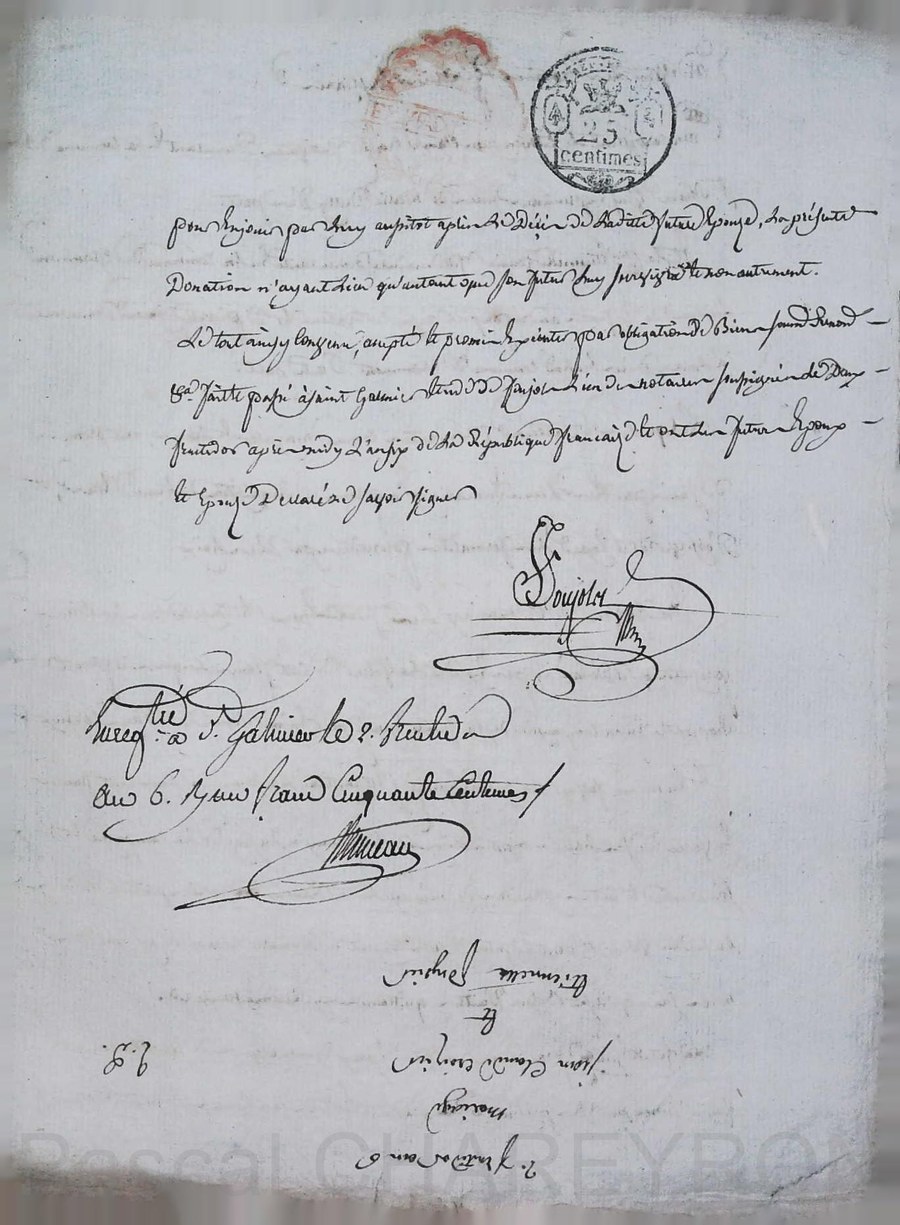 25
centimes
pour en jouir par luy aussitot après le Décès de Ladite future Epouze, La présente
Donation n'ayant Lieu qu'autant que son futur luy survivra et non autrement.
Le tout ainsy convenu, accepté et promis Exécuter par obligation de Biens soumis Renon
&a. fait et passé à Saint Galmier Etude de Poujolz L'un des notaires soussignés Le Deux
fructidor après midy L'an six de La République française et ont Les futurs Epoux
et Epouze Déclaré ne savoir signer
Poujolz
Enregtré à St. Galmier le 2. fructidor
an 6. R un franc Cinquante Centimes
2. fructidor an 6
mariage
jean Claude
et
Etiennette